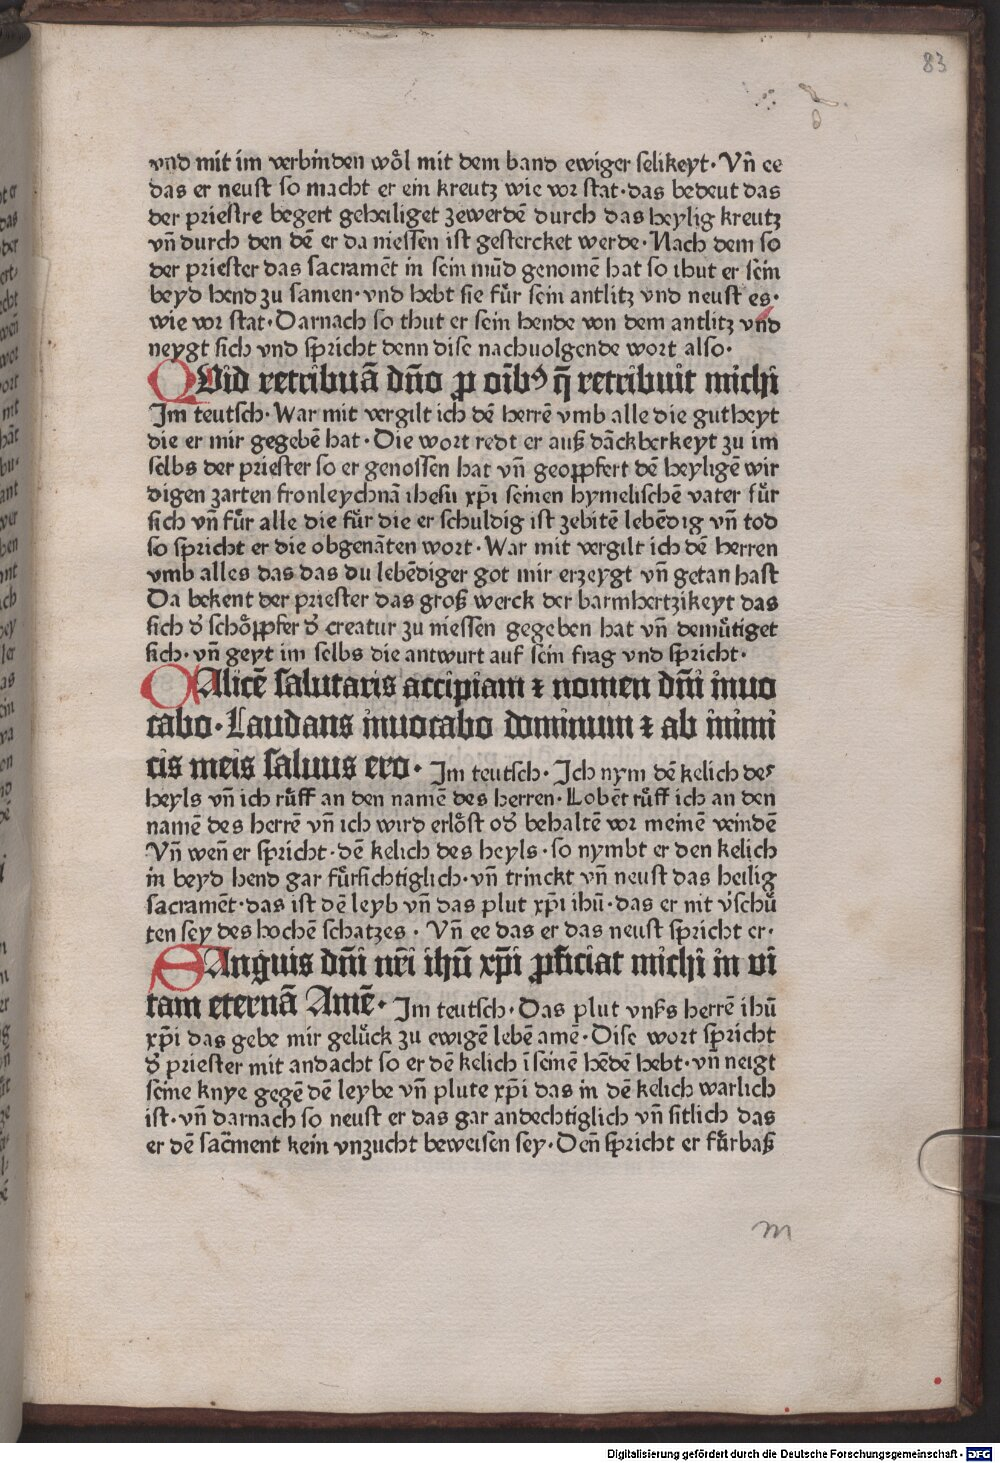 83
vnd mit im verbinden wöl mit dem band ewiger selikeyt· Vñ ee
das er neust so macht er ein kreutz wie vor stat·das bedeut das
der priestre begert geheiliget zewerdē durch das heylig kreutz
vñ durch den dē er da niessen ist gestercket werde·Nach dem so
der priester das sacramēt in sein mūd genomē hat so thut er sein
beyd hend zu samen·vnd hebt sie für sein antlitz vnd neust es·
wie vor stat·Darnach so thut er sein hende von dem antlitz vnd
neygt sich vnd spricht denn dise nachuolgende wort also·
QVid retribuā dño ꝓ oībꝰ q̄ retribuit michi
Im teutsch·War mit vergilt ich dē herrē vmb alle die gutheyt
die er mir gegebē hat·Die wort redt er auß dāckberkeyt zu im
selbs der priester so er genossen hat vñ geopfert dē heyligē wir
digen zarten fronleychnā ihesu xp̄i seinen hymelischē vater für
sich vñ für alle die für die er schuldig ist zebitē lebēdig vñ tod
so spricht er die obgenāten wort·War mit vergilt ich dē herren
vmb alles das das du lebēdiger got mir erzeygt vñ getan hast
Da bekent der priester das groß werck der barmhertzikeyt das
sich d̄ schöpfer d̄ creatur zu niessen gegeben hat vñ demütiget
sich·vñ geyt im selbs die antwurt auf sein frag vnd spricht·
CAlicē salutaris accipiam ⁊ nomen dñi inuo
cabo·Laudans inuocabo dominum ⁊ ab inimi
cis meis saluus ero· Im teutsch·Ich nym dē kelich des
heyls vñ ich rüff an den namē des herren·Lobēt rüff ich an den
namē des herrē vñ ich wird erlöst od̄ behaltē vor meinē veindē
Vñ weñ er spricht·dē kelich des heyls·so nymbt er den kelich
in beyd hend gar fürsichtiglich·vñ trinckt vñ neust das heilig
sacramēt·das ist dē leyb vñ das plut xp̄i ihū·das er nit v̄schü
ten sey des hochē schatzes· Vñ ee das er das neust spricht er·
SAnguis dñi nr̄i ihū xp̄i ꝓficiat michi in vi
tam eternā Amē· Im teutsch·Das plut vnſs herrē ihū
xp̄i das gebe mir gelück zu ewigē lebē amē·Dise wort spricht
d̄ priester mit andacht so er dē kelich ī seinē hēdē hebt·vñ neigt
seine knye gegē dē leybe vñ plute xp̄i das in dē kelich warlich
ist·vñ darnach so neust er das gar andechtiglich vñ sitlich das
er dē sac̄ment kein vnzucht beweisen sey·Deñ spricht er fürbaß
m
Digitalisierung gefördert durch die Deutsche Forschungsgemeinschaft - DFG